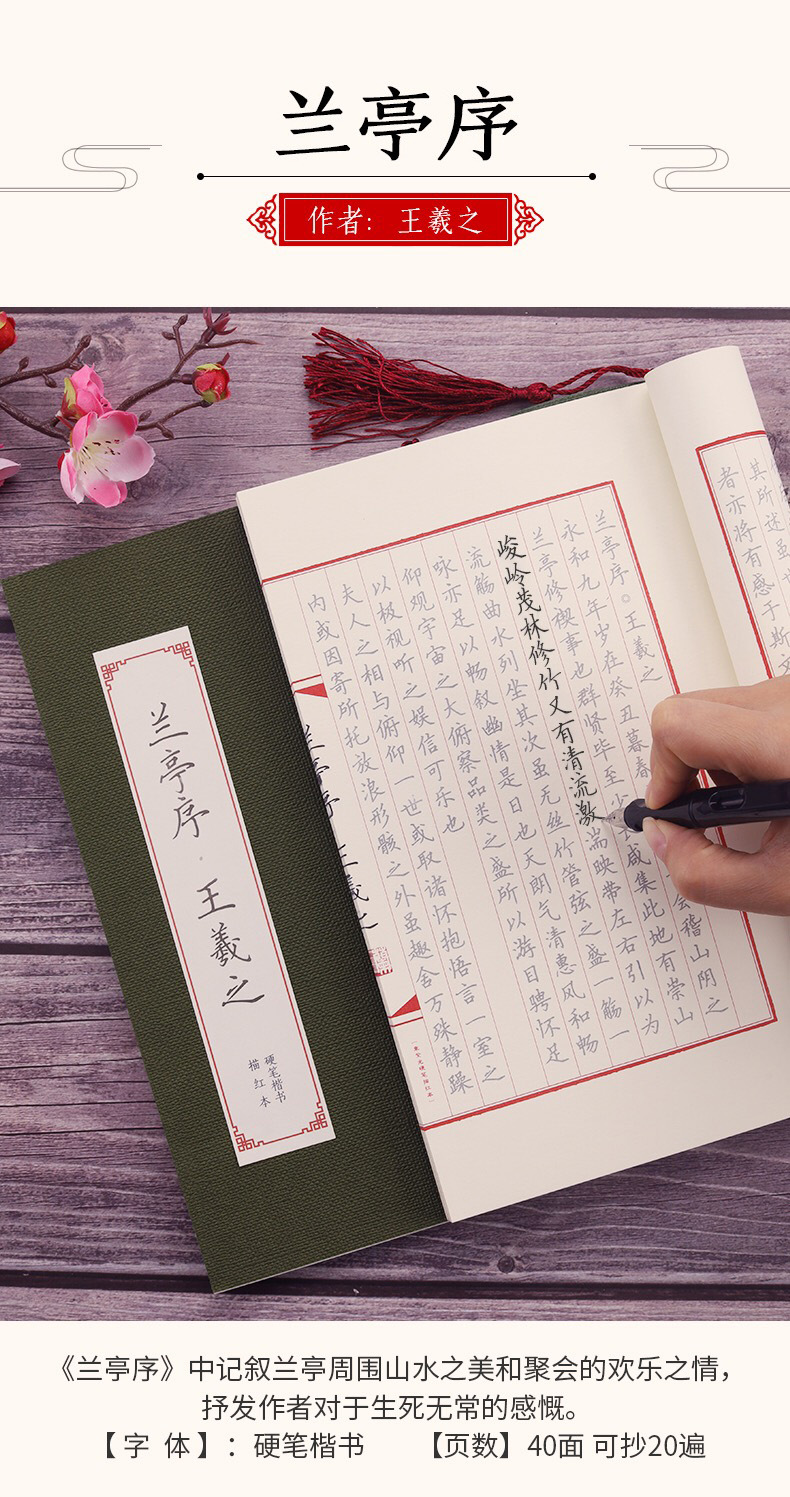 兰亭序
作者：王羲之
其所述虽世
者亦将有感于斯文
兰亭序。王羲之
永和九年岁在癸丑暮春 会稽山阴之
兰亭修禊事也群贤毕至少 咸集此地有崇山
峻岭茂林修竹又有清流激湍映带左右引以为
流觞曲水列坐其次虽无丝竹管弦之盛一觞一
咏亦足以畅叙幽情是日也天朗气清惠风和畅
仰观宇宙之大俯察品类之盛所以游目骋怀足
以极视听之娱信可乐也
夫人之相与俯仰一世或取诸怀抱悟言一室之
内或因寄所托放浪形骸之外虽趣舍万殊静躁
兰亭序 王羲之
兰亭序 王羲之
硬笔楷书
描红本
《兰亭序》中记叙兰亭周围山水之美和聚会的欢乐之情，
抒发作者对于生死无常的感慨。
【字 体】：硬笔楷书 【页数】40面 可抄20遍